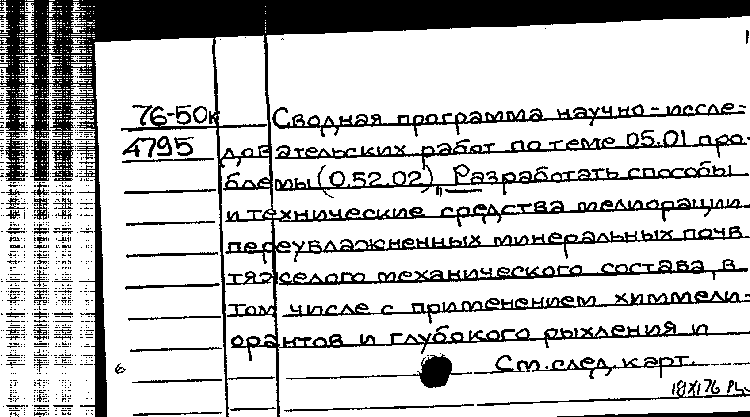 76-50к Сводная программа научно-иссле-
4795 довательских работ по теме 05.01 про-
блемы (0.52.02) „Разработать способы
и технические средства мелиорации
переувлажненных минеральных почв
тяжелого механического состава, в
том числе с применением химмели-
орантов и глубокого рыхления и
См. след. карт.
6